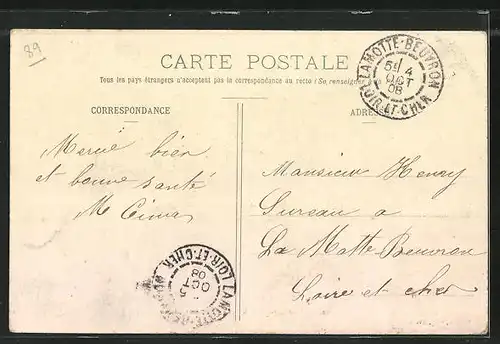 89
CARTE POSTALE
Tous les pays étrangers n'acceptent pas la correspondance au recto (Se renseigner à la
LAMOTTE-BEUVRON
5E 4
OCT
08
LOIR-ET-CHER
CORRESPONDANCE
ADRESSE
Merci bien
et bonne santé
M
Monsieur Henry
Sureau a
La Motte Beuvron
Loire et cher
LAMOTTE-BEUVRON
5
OCT
08
LOIR-ET-CHER